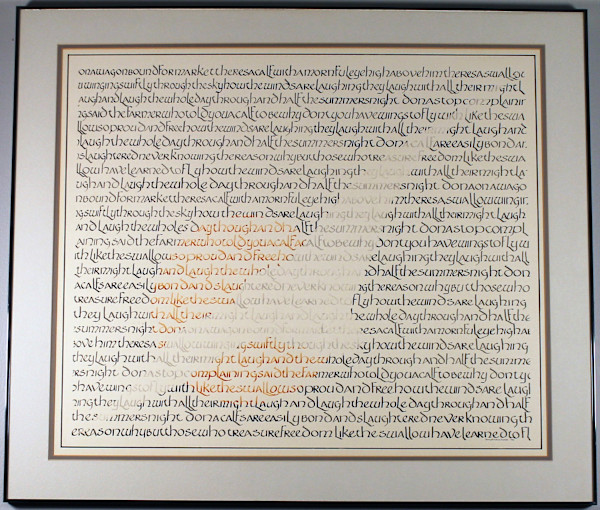 onawagonboundformarkettheresacalfwithamornfuleyehighabovehimtheresaswallo
wwingingswiftlythroughtheskyhowthewindsarelaughingtheylaughwithalltheirmight l
aughandlaughthewholedaythroughandhalfthesummersnight donastopcomplainin
gsaidthefarmerwhotoldyouacalftobewhydontyouhavewingstoflywithliketheswa
llowsoproudandfreehowthewindsarelaughingtheylaughwithalltheirmightlaughand
laughthewholedaythroughandhalfthesummersnight donacalfsareeasilybondan
slaughteredneverknowingthereasonwhybutthosewhotreasurefreedomliketheswa
llowhavelearnedtoflyhowthewindsarelaughingtheylaughwithalltheirmightla
ughandlaughthewholedaythroughandhalfthesummersnight donaonawago
nboundformarkettheresacalfwithamornfuleyehighabovehimtheresaswallowwingin
gswiftlythroughtheskyhowthewindsarelaughingtheylaughwithalltheirmightlaugh
andlaughthewholesdaythoughandhalfthesummersnight donastopcompl
ainingsaidthefarmerwhotoldyouacalfacalftobewhydontyouhavewingstoflyw
ithliketheswallowsoproudandfreehowthewindsarelaughingtheylaughwithall
theirmightlaughandlaughthewholedaythroughandhalfthesummersnight don
acalfsareeasilybondandslaughteredneverknowingthereasonwhybutthosewho
treasurefreedomliketheswallowhavelearnedtoflyhowthewindsarelaughing
theylaughwithalltheirmight wholedaythroughandhalfthe
summersnight donaonawagon calfwithamornfuleyehighab
ovehimtheresaswallowwingingswiftlythroughtheskyhowthewindsarelaughing
theylaughwithalltheirmightlaughandlaughthewholedaythroughandhalfthesumme
rsnight donastopcomplainingsaidthefarmerwhotoldyouacalftobewhydonty
ouhavewingstoflywithliketheswallowsoproudandfreehowthewindsarelaugh
ingtheylaughwithalltheirmightlaughandlaughthewholedaythroughandhalf
thesummersnight donacalfsareeasilybondandslaughteredneverknowingth
ereasonwhybutthosewhotreasurefreedomliketheswallowhavelearnedtofl